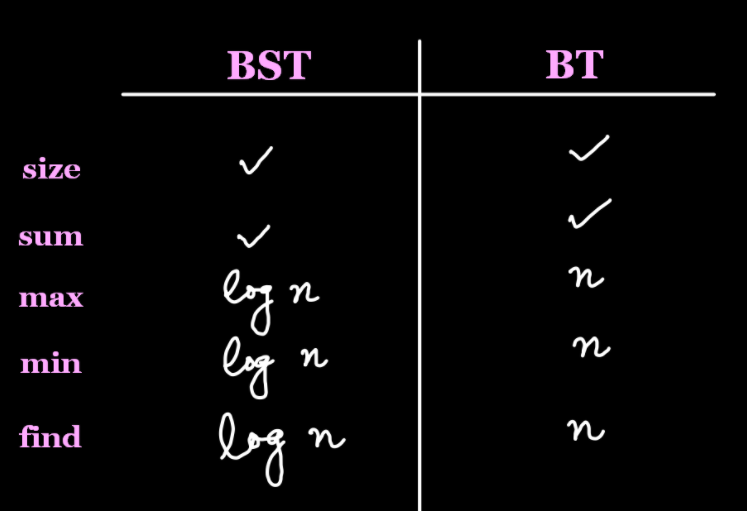 BST BT
size ✓ ✓
sum ✓ ✓
max log n n
min log n n
find log n n